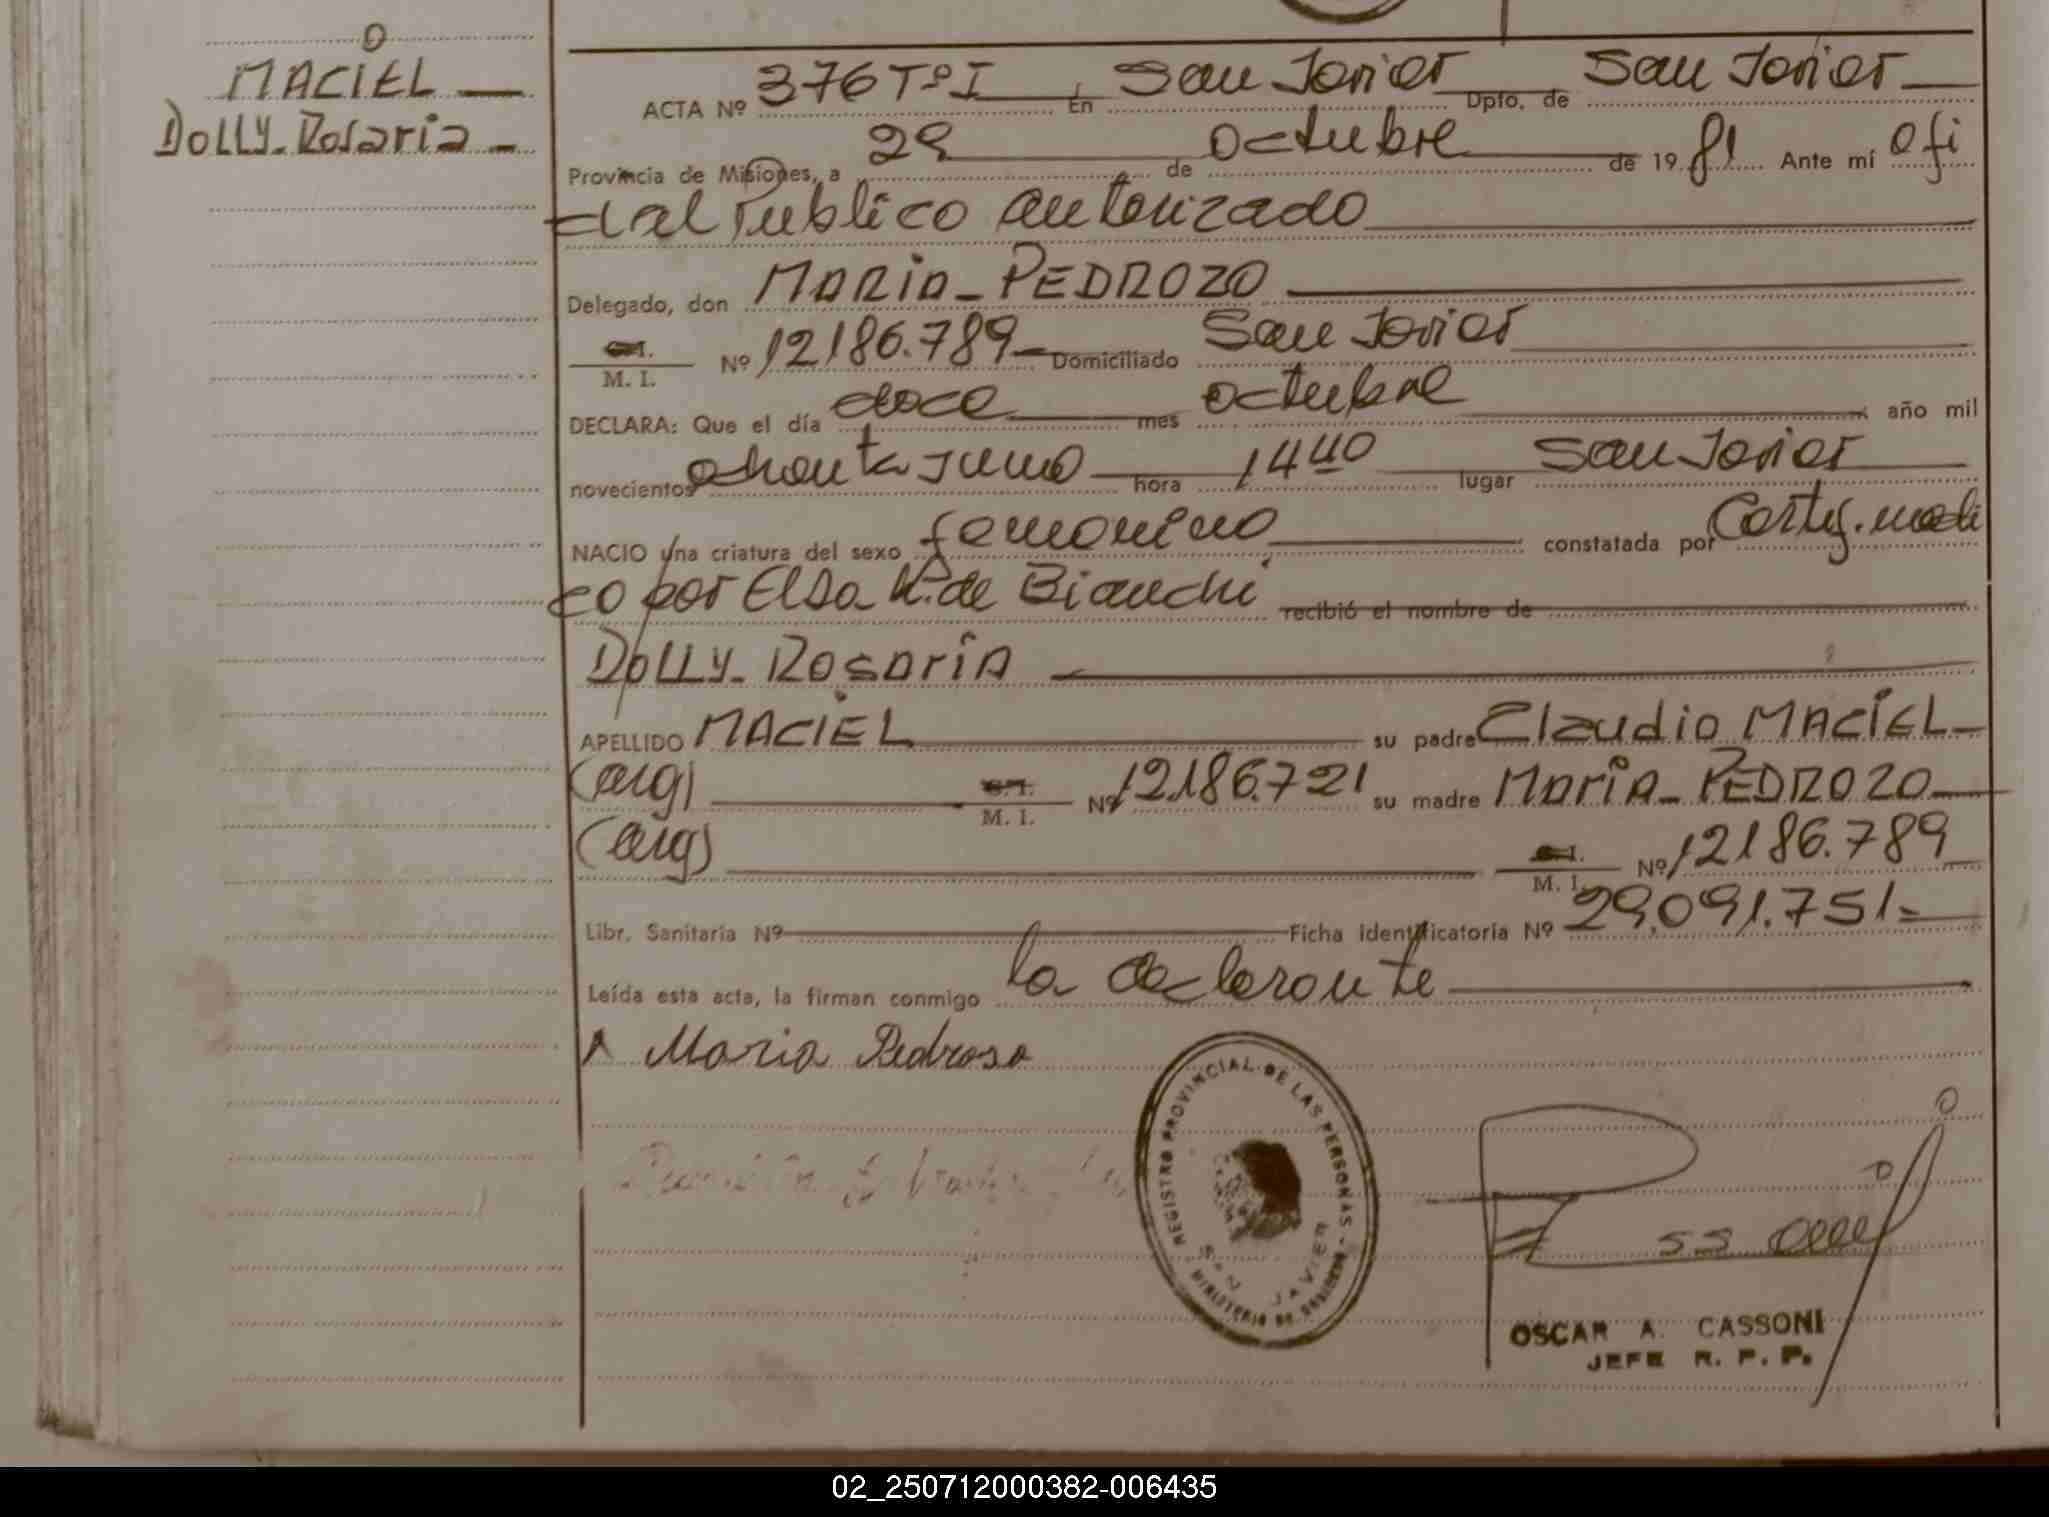 MACIEL
Dolly-Rosaria-
ACTA Nº 376 Tº I En San Javier Dpto. de San Javier
Provincia de Misiones, a 29 de octubre de 1981 Ante mí Ofi
cial Publico autorizado
Delegado, don MARIA-PEDROZO
M. I. Nº 12186.789- Domiciliado San Javier
DECLARA: Que el día doce mes octubre año mil
novecientos ochenta y uno hora 14 40 lugar San Javier
NACIO una criatura del sexo femenino constatada por Certif. medi
co por Elsa K. de Bianchi recibió el nombre de
DOLLY-ROSARIA
APELLIDO MACIEL su padre Claudio MACIEL-
(arg) M. I. Nº 12.186.721 su madre MARIA-PEDROZO
(arg) M. I. Nº 12186.789
Libr. Sanitaria Nº Ficha identificatoria Nº 29.091.751-
Leída esta acta, la firman conmigo la declarante
Maria Pedroso
REGISTRO PROVINCIAL DE LAS PERSONAS - MINISTERIO DE GOBIERNO
SAN JAVIER
OSCAR A. CASSONI
JEFE R. P. P.
02_250712000382-006435